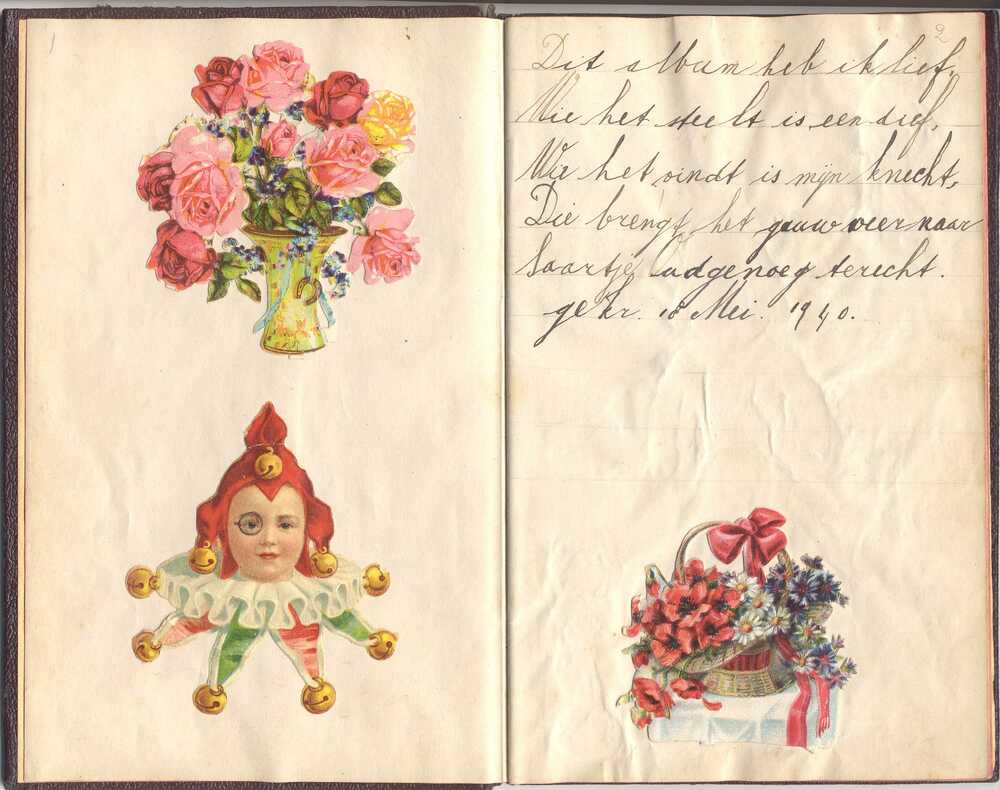 1
2
Dit album heb ik lief,
Wie het steelt is een dief,
Wie het vindt is mijn knecht,
Die brengt het gauw weer naar
Saartje Ladgenoeg terecht.
gekr. 18 Mei. 1940.